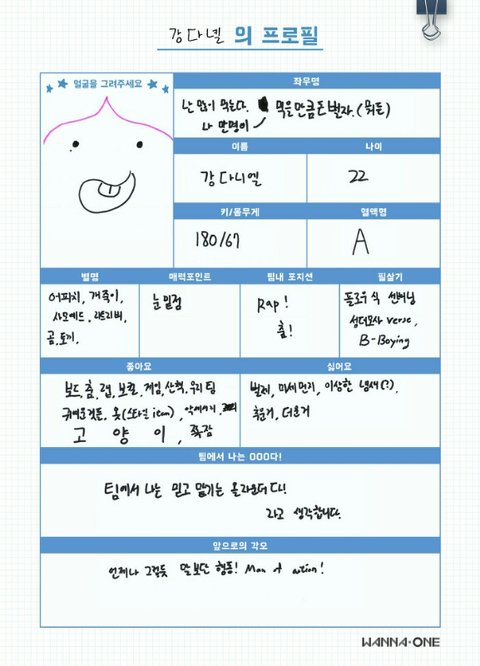 강다넬 의 프로필
얼굴을 그려주세요
좌우명
난 많이 먹는다. 먹을만큼 돈 벌자. (뭐든)
나 만명이
이름
나이
강다니엘
22
키/몸무게
혈액형
180/67
A
별명
매력포인트
팀내 포지션
필살기
어피치, 개죽이,
사모예드,
곰, 토끼,
눈밑점
Rap!
춤!
플로우식 선배님
성대모사 verse,
B-Boying
좋아요
싫어요
보드, 춤, 랩, 보컬, 게임, 산책, 우리팀
귀여운것들, 옷
고양이,
벌레, 미세먼지, 이상한 냄새(?),
추운거, 더운거
팀에서 나는 OOO다!
팀에서 나는 믿고 맡기는 올라운더다!
라고 생각합니다.
앞으로의 각오
언제나 그렇듯 말보단 행동! Man of action!
WANNA·ONE